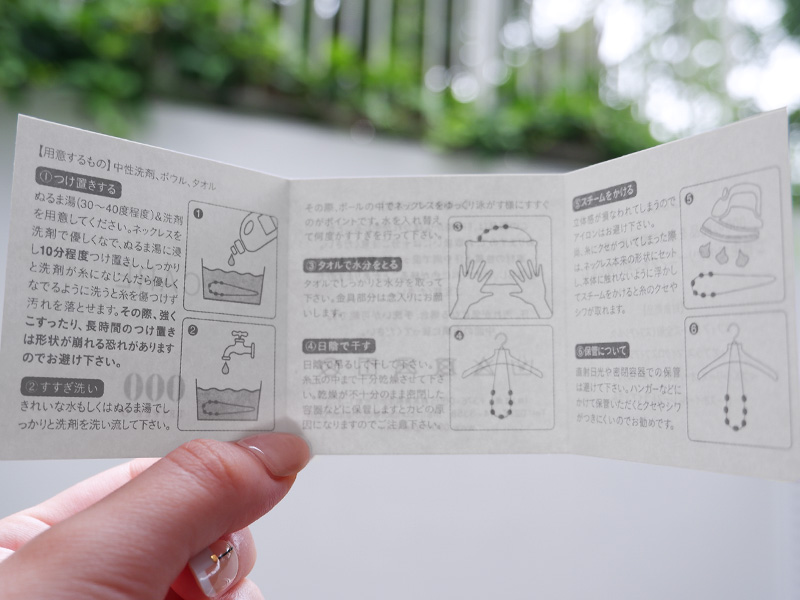 【用意するもの】中性洗剤、ボウル、タオル
①つけ置きする
ぬるま湯(30〜40度程度)&洗剤
を用意してください。ネックレスを
洗剤で優しくなで、ぬるま湯に浸
し10分程度つけ置きし、しっかり
と洗剤が糸になじんだら優しく
なでるように洗うと糸を傷つけず
汚れを落とせます。その際、強く
こすったり、長時間のつけ置き
は形状が崩れる恐れがあります
のでお避け下さい。
②すすぎ洗い
きれいな水もしくはぬるま湯でし
っかりと洗剤を洗い流して下さい。
1
2
その際、ボールの中でネックレスをゆっくり泳がす様にすすぐ
のがポイントです。水を入れ替え
て何度かすすぎを行って下さい。
③タオルで水分をとる
タオルでしっかりと水分を取って
下さい。金具部分は念入りにお願
いします。
④日陰で干す
日陰で吊るして干して下さい。
糸玉の中まで十分乾燥させて下さ
い。乾燥が不十分のまま密閉した
容器などに保管しますとカビの原
因になりますのでご注意下さい。
3
4
⑤スチームをかける
立体感が損なわれてしまうので
アイロンはお避け下さい。
糸にクセがついてしまった際
は、ネックレス本来の形状にセット
し、本体に触れないように浮かし
てスチームをかけると糸のクセや
シワが取れます。
⑥保管について
直射日光や密閉容器での保管
は避けて下さい。ハンガーなどに
かけて保管いただくとクセやシワ
がつきにくいのでお勧めです。
5
6